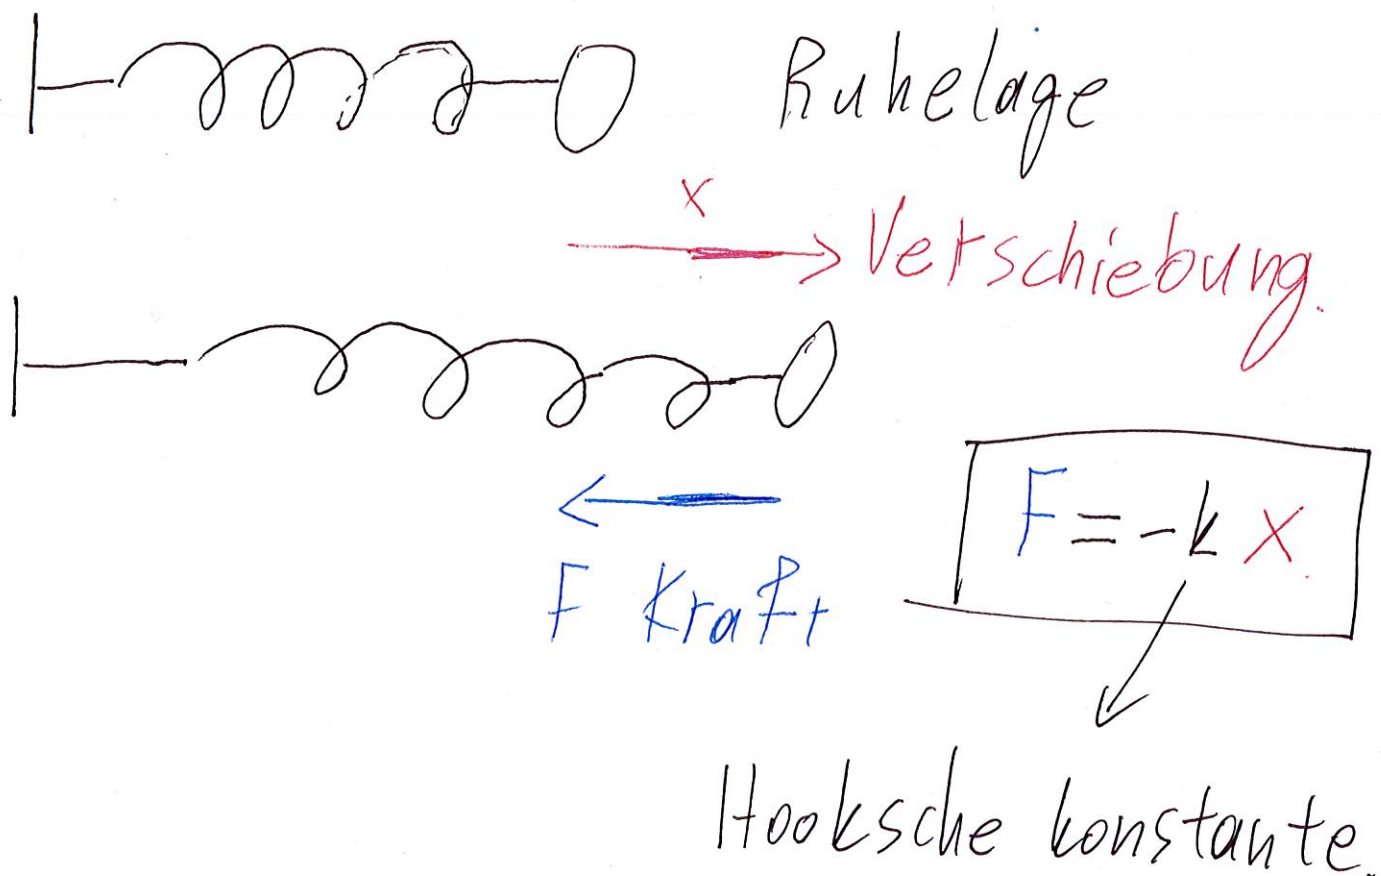 Ruhelage
x
Verschiebung.
F Kraft
F = -k x.
Hooksche konstante.